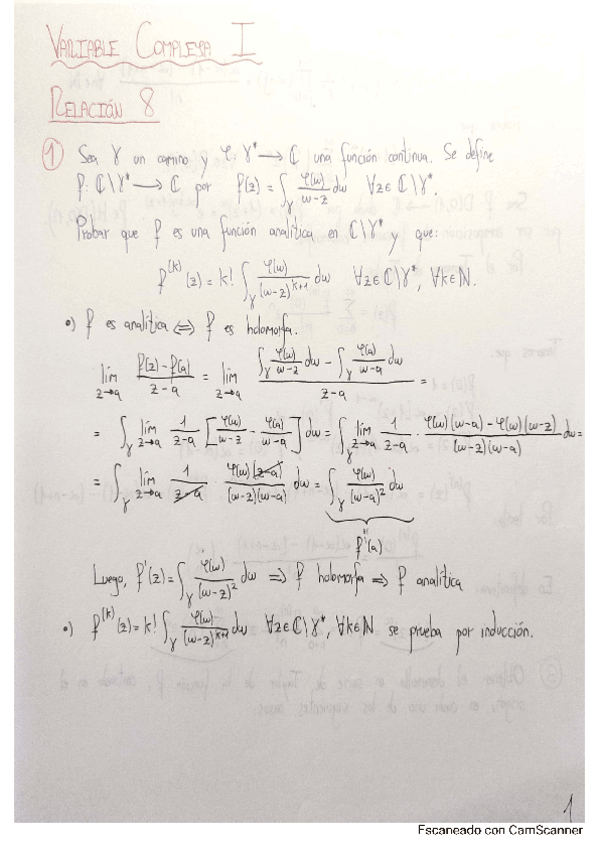 VARIABLE COMPLEJA I
RELACIÓN 8
① Sea γ un camino y φ: γ* → ℂ una función continua. Se define
f: ℂ\γ* → ℂ por f(z) = ∫_γ φ(w)/(w-z) dw ∀z∈ℂ\γ*.
Probar que f es una función analítica en ℂ\γ* y que:
f^(k)(z) = k! ∫_γ φ(w)/(w-z)^(k+1) dw ∀z∈ℂ\γ*, ∀k∈ℕ.
•) f es analítica ⟺ f es holomorfa.
lím_{z→a} (f(z)-f(a))/(z-a) = lím_{z→a} (∫_γ φ(w)/(w-z) dw - ∫_γ φ(w)/(w-a) dw)/(z-a) =
= ∫_γ lím_{z→a} 1/(z-a) [φ(w)/(w-z) - φ(w)/(w-a)] dw = ∫_γ lím_{z→a} 1/(z-a) · (φ(w)(w-a) - φ(w)(w-z))/((w-z)(w-a)) dw =
= ∫_γ lím_{z→a} 1/(z-a) φ(w)(z-a)/((w-z)(w-a)) dw = ∫_γ φ(w)/(w-a)² dw
f'(a)
Luego, f'(z) = ∫_γ φ(w)/(w-z)² dw ⟹ f holomorfa ⟹ f analítica
•) f^(k)(z) = k! ∫_γ φ(w)/(w-z)^(k+1) dw ∀z∈ℂ\γ*, ∀k∈ℕ se prueba por inducción.
1
Escaneado con CamScanner